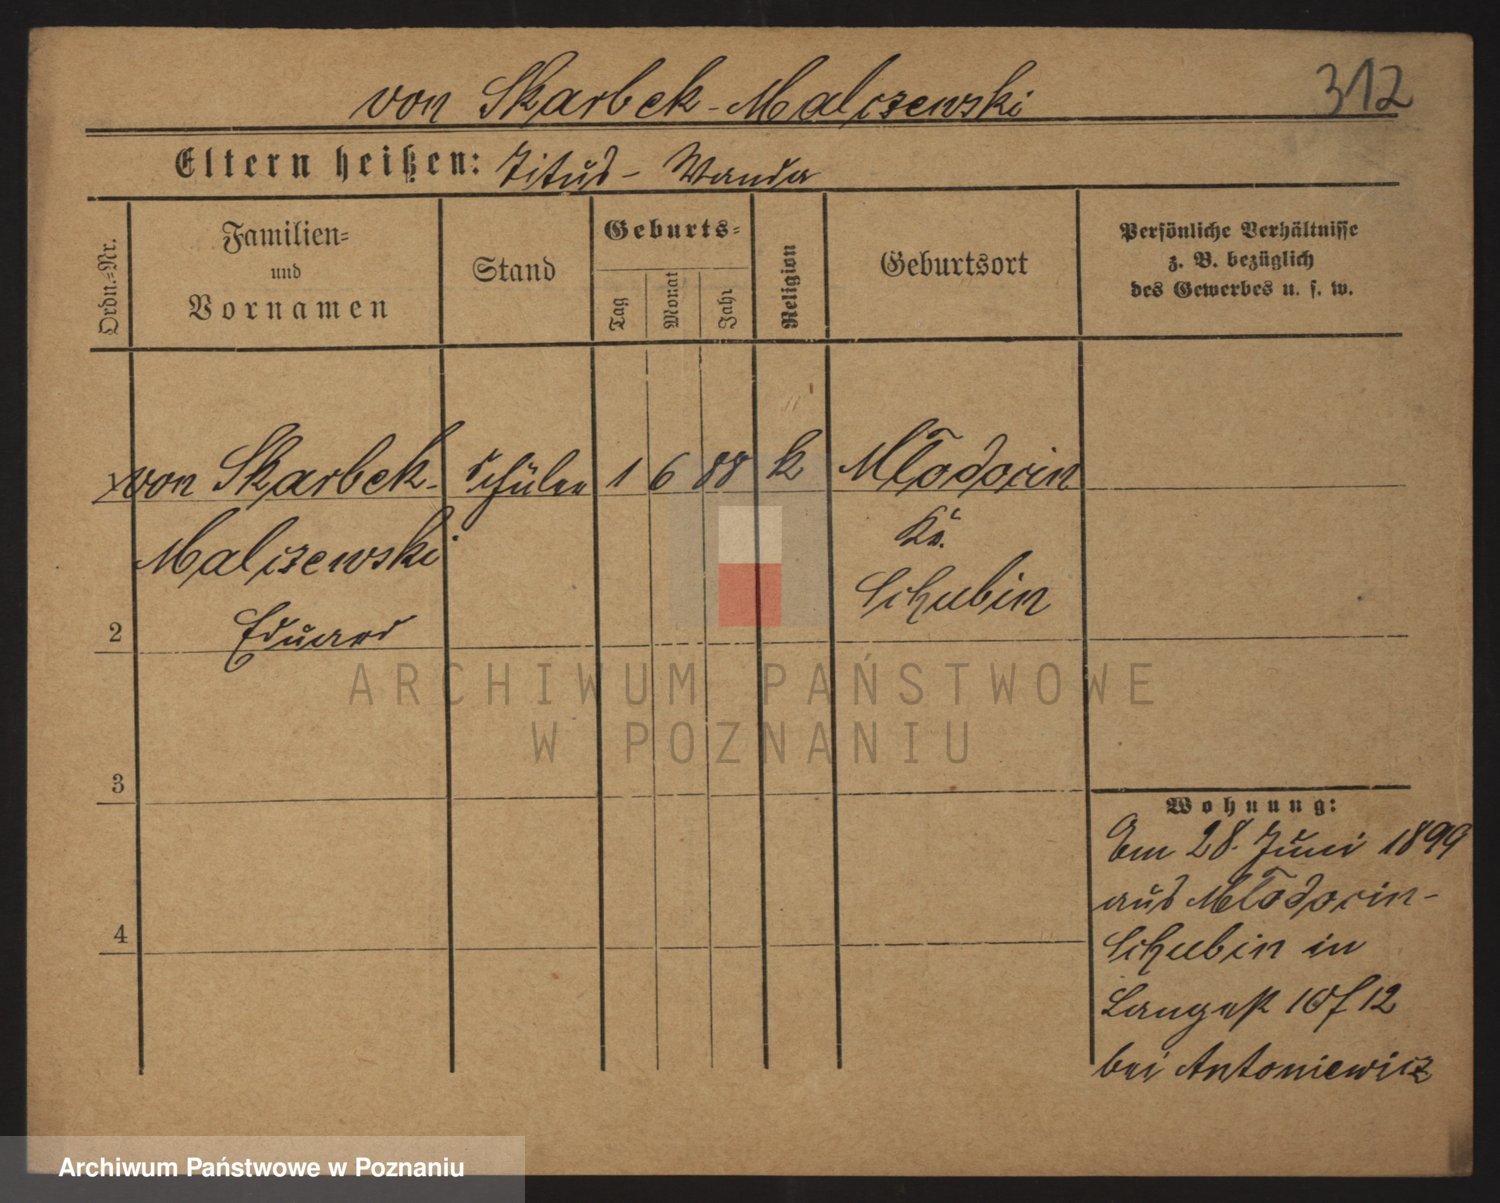 von Skarbek-Malczewski 312
Eltern heißen: Titus - Wanda
Ordn.-Nr.
Familien-
und
Vornamen
Stand
Geburts-
Tag
Monat
Jahr
Religion
Geburtsort
Persönliche Verhältnisse
z. B. bezüglich
des Gewerbes u. s. w.
von Skarbek- Schüler 1 6 88 k Młodocin
Malczewski Kr.
Schubin
2 Eduard
ARCHIWUM PAŃSTWOWE
W POZNANIU
3
4
Wohnung:
Am 28. Juni 1899
aus Młodocin-
Schubin in
Langestr 10/12
bei Antoniewicz
Archiwum Państwowe w Poznaniu